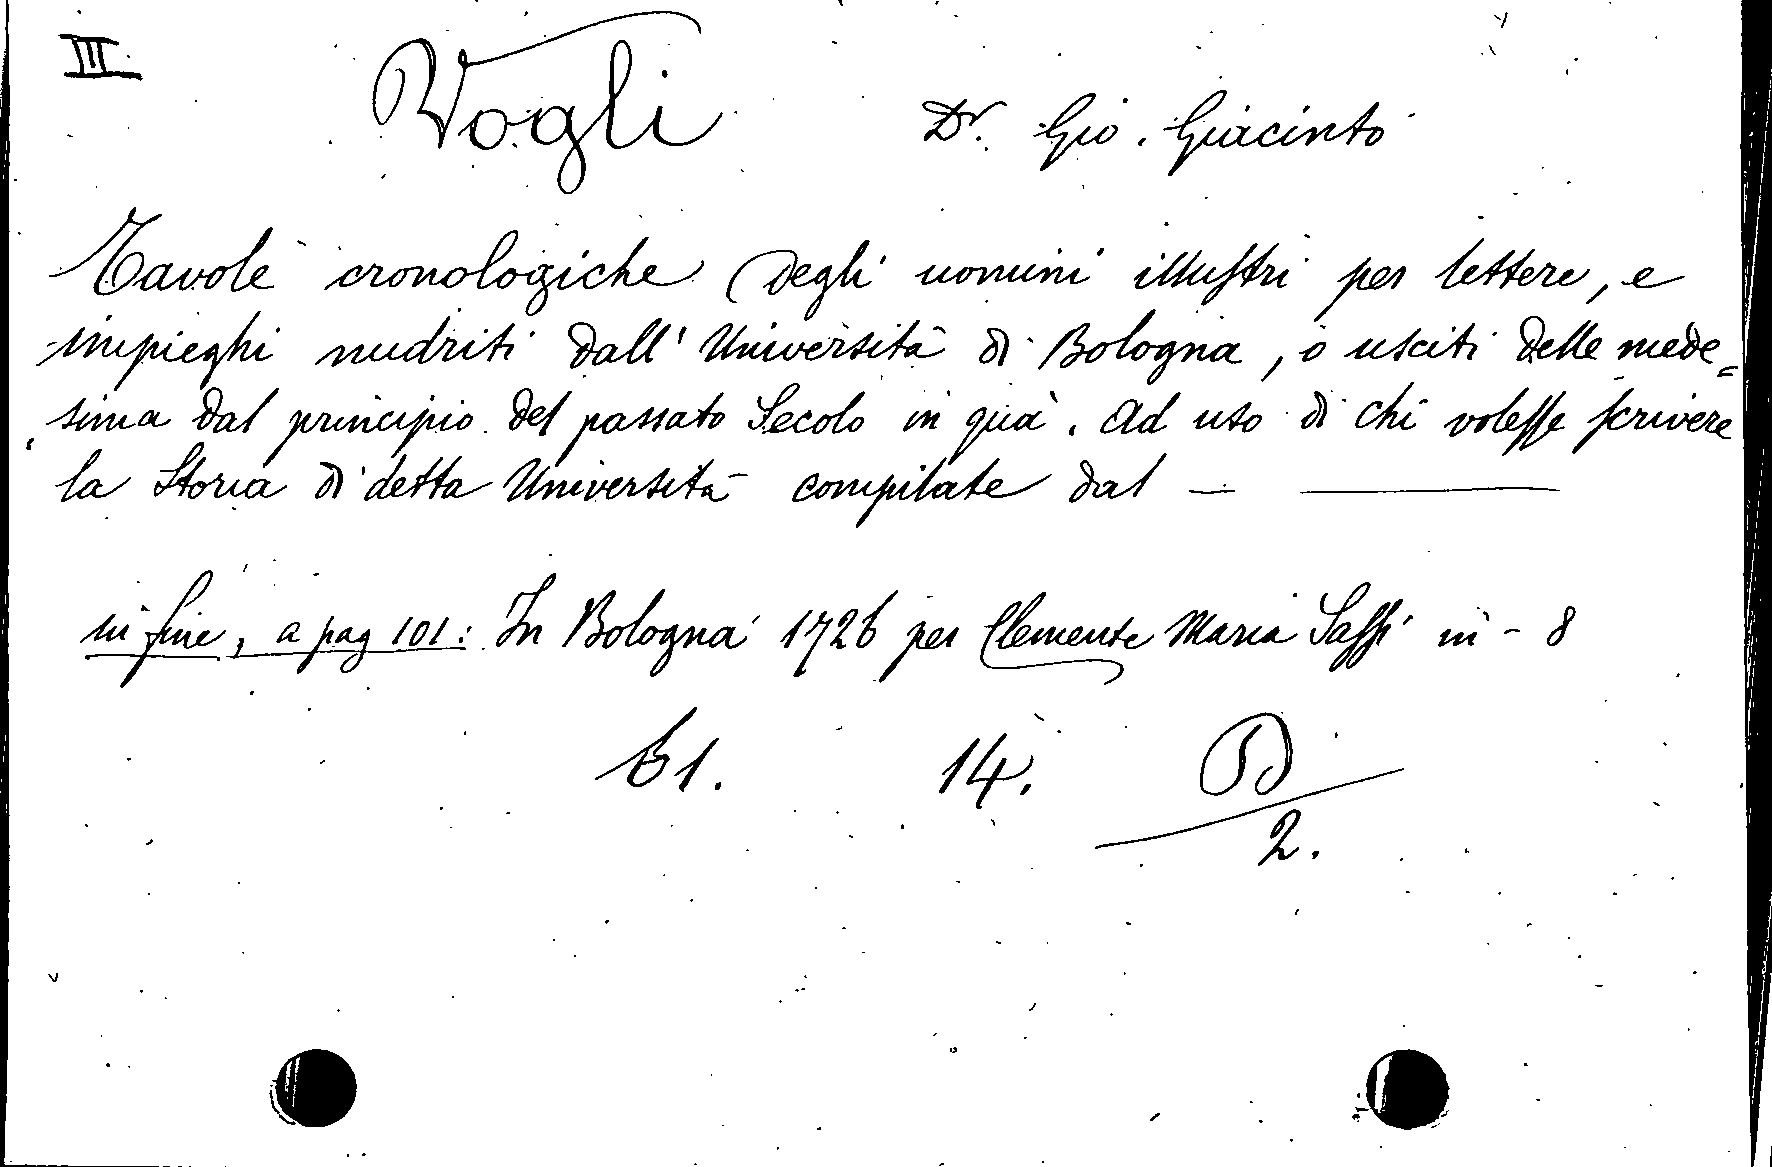 III
Vogli Dr. Gio. Giacinto
Tavole cronologiche degli uomini illustri per lettere, e
impieghi nudriti dall' Università di Bologna, o usciti delle mede=
sima dal principio del passato Secolo in quà. Ad uso di chi volesse scrivere
la Storia di detta Università compilate dal — ———
in fine, a pag 101: In Bologna 1726 per Clemente Maria Sassi in - 8
61. 14. D
2.